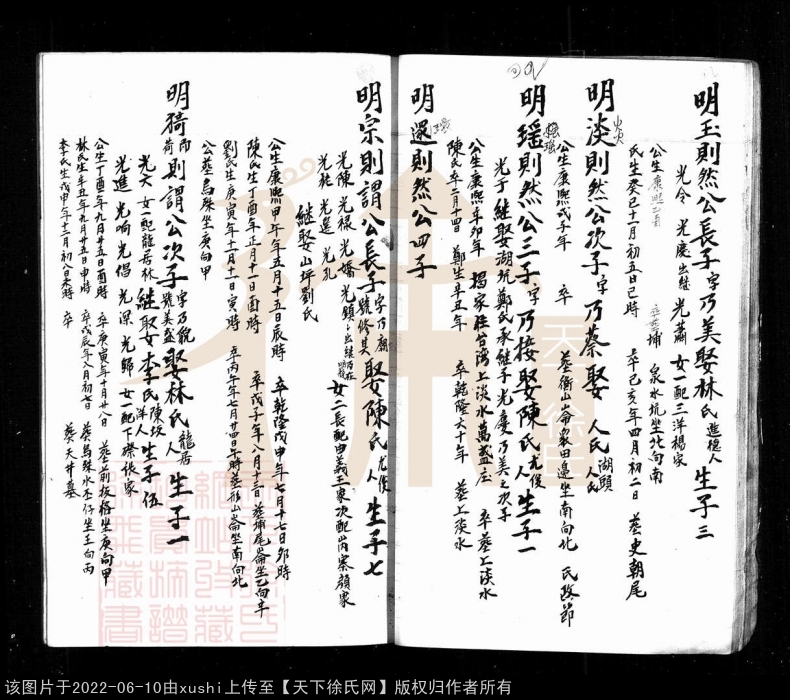 明玉則然公長子字乃美娶林氏進德人生子三
光令 光慶出繼 光蕭 女一配三洋楊家
公生康熙
埔 泉水坑坐北向南
明淡則然公次子字乃蔡娶 人氏湖頭人氏
氏生癸巳十一月初五日巳時 卒己亥年四月初二日 葬史朝尾
公生康熙戊子年 卒 葬衡山崙衆田邊坐南向北 氏改節
明瑶則然公三子字乃接娶陳氏尤俊人生子一
光于 繼娶湖坑鄭氏承繼子光慶乃美之次子
公生康熙辛卯年 揭家莊台灣上淡水萬盛庄 卒葬上淡水
陳氏卒二月十四 鄭生辛丑年 卒乾隆六十年 葬上淡水
明還則然公四子
明宗則謂公長子字乃廟號修其娶陳氏尤俊人生子七
光陳 光禄 光婿 光鎮 女二長配由義王家次配山内寨顏家
光能 光進 光孔
繼娶山坪劉氏
公生康熙甲午年五月十五日辰時 卒乾隆戊申年七月十七日卯時
陳氏生丁酉年正月十一日酉時 卒戊子年八月十三日 葬埔尾崙坐乙向辛
劉氏生庚寅年十一月十一日寅時 卒丙午年七月廿四日午時葬形山崙坐南向北
公葬烏殊坐庚向甲
明猗則謂公次子字乃貌號美盛娶林氏龍居人生子一
光大 女一配龍居林 繼娶李氏陳坂洋人生子伍
光進 光响 光倡 光深 光歸 女一配下樑張家
公生丁酉年九月廿五日酉時 卒庚寅年十月廿八日 葬前坂格坐庚向甲
林氏生辛丑年九月廿五日申時 卒戊辰年八月初七日 葬烏殊水丕仔坐壬向丙
李氏生戊申年十二月初八日未時 卒 葬天井墓
天下徐氏
该图片于2022-06-10由xushi上传至【天下徐氏网】版权归作者所有